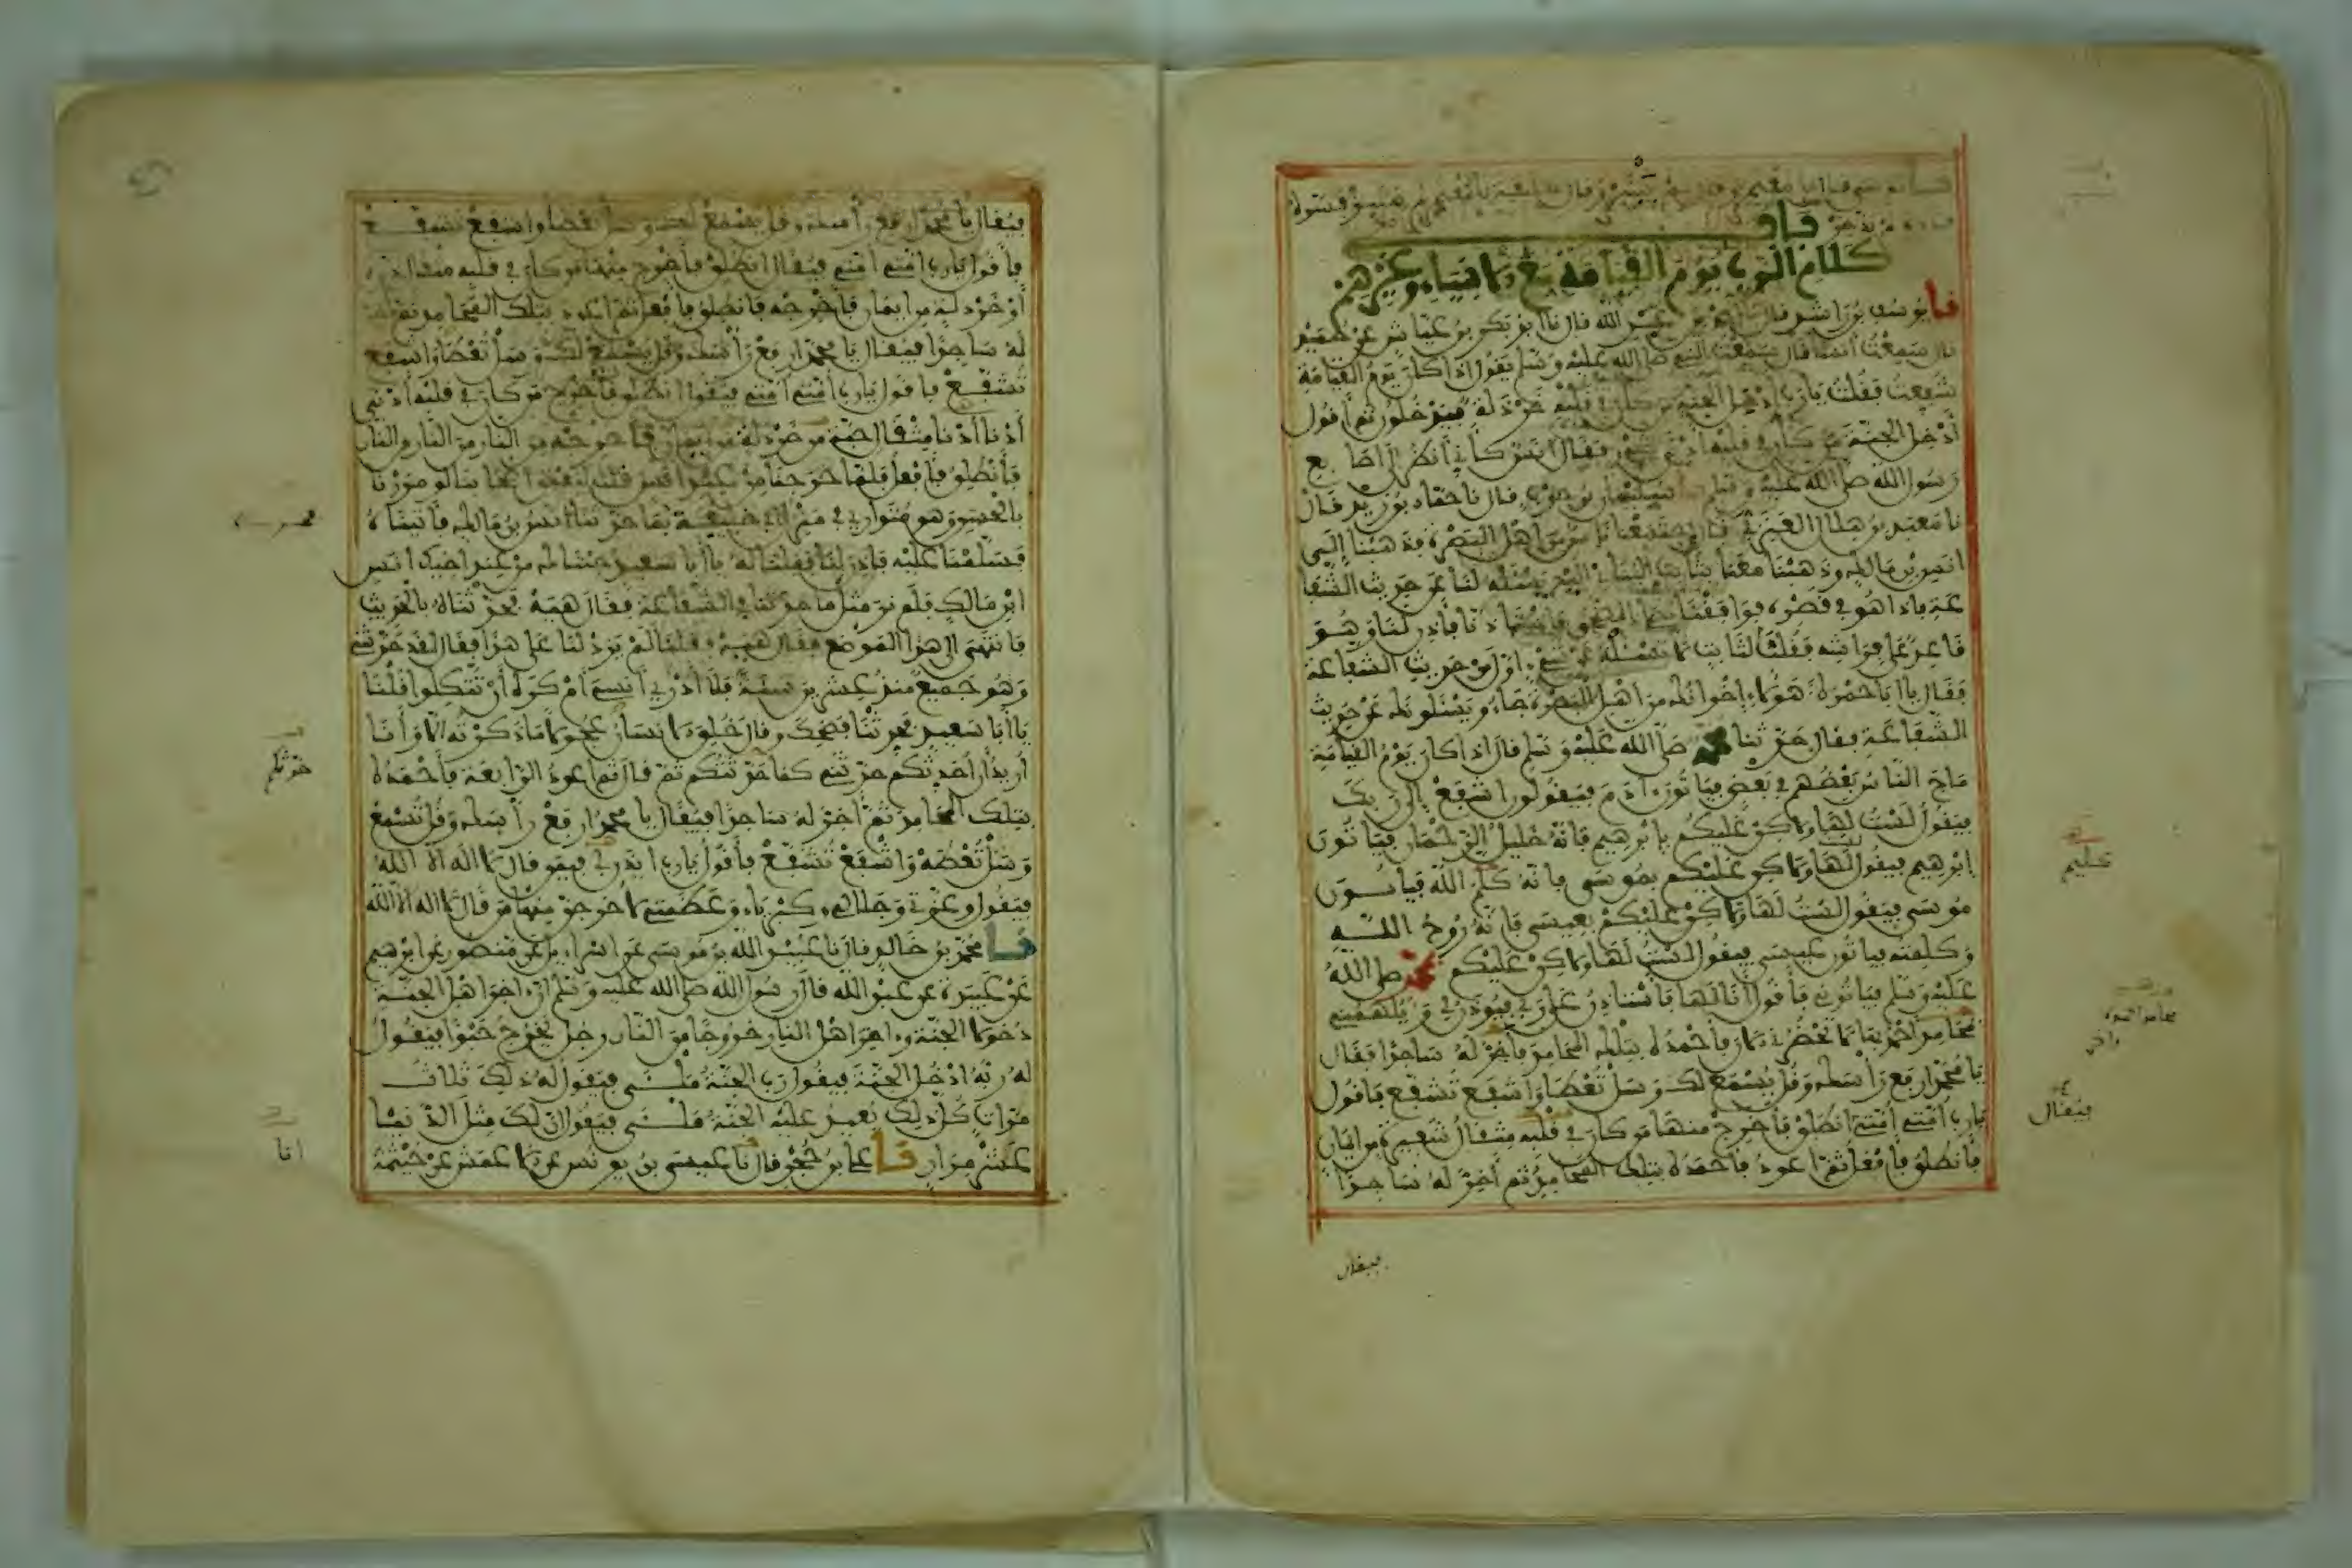 باب
كلام الرب يوم القيامة مع الانبياء وغيرهم
نا يوسف بن راشد قال نا احمد بن عبد الله قال نا ابو بكر بن عياش عن حميد
قال سمعت أنسا قال سمعت النبي صلى الله عليه وسلم يقول اذا كان يوم القيامة
شفعت فقلت يا رب أدخل الجنة من كان في قلبه خردلة فيدخلون ثم أقول
أدخل الجنة من كان في قلبه أدنى شيء فقال أنس كأني أنظر إلى أصابع
رسول الله صلى الله عليه وسلم نا سليمان بن حرب قال نا حماد بن زيد قال
نا معبد بن هلال العنزي قال اجتمعنا ناس من اهل البصرة فذهبنا إلى
انس بن مالك وذهبنا معنا بثابت البناني اليه يسئله لنا عن حديث الشفا
عة فاذا هو في قصره فوافقناه يصلي الضحى فاستأذنا فأذن لنا وهو
قاعد على فراشه فقلنا لثابت لا تسئله عن شيء اول من حديث الشفاعة
فقال يا ابا حمزة هؤلاء إخوانك من اهل البصرة جاءو يسئلونك عن حديث
الشفاعة فقال حدثنا محمد صلى الله عليه وسلم قال اذا كان يوم القيامة
ماج الناس بعضهم في بعض فياتون ءادم فيقولون اشفع الى ربك
فيقول لست لها ولاكن عليكم بإبرهيم فانه خليل الرحمان فياتون
إبرهيم فيقول لست لها ولاكن عليكم بموسى فانه كلم الله فياتون
موسى فيقول لست لها ولاكن عليكم بعيسى فانه روح الله
وكلمته فياتون عيسى فيقول لست لها ولاكن عليكم بمحمد صلى الله
عليه وسلم فياتوني فأقول انا لها فأستاذن على ربي فيوذن لي ويلهمني
محامد احمده بها لا تحضرني الان فأحمده بتلك المحامد فأخر له ساجدا فقال
يا محمد ارفع رأسك وقل يسمع لك وسل تعطا واشفع تشفع فاقول
يا رب امتي امتي انطلق فأخرج منها من كان في قلبه مثقال شعيرة من ايمان
فأنطلق فأفعل ثم اعود فأحمده بتلك المحامد ثم أخر له ساجدا
فيقال
فيقال
فيقال يا محمد ارفع رأسك وقل يسمع لك وسل تعطا واشفع تشفع
فأقول يا رب امتي امتي فيقال انطلق فأخرج منها من كان في قلبه مثقال ذرة
أو خردلة من ايمان فأخرجه فانطلق فأفعل ثم اعود بتلك المحامد ثم أخر
له ساجدا فيقال يا محمد ارفع رأسك وقل يسمع لك وسل تعطا واشفع
تشفع فاقول يا رب أمتي أمتي فيقول انطلق فأخرج من كان في قلبه أدنى
أدنا أدنا مثقال حبة من خردلة من ايمان فأخرجه من النار من النار والنار
فأنطلق فأفعل فلما خرجنا من عند أنس قلت لبعض اصحابنا لو مررنا
بالحسن وهو متوار في منزل ابي خليفة بما حدثنا أنس بن مالك فأتيناه
فسلمنا عليه فاذن لنا فقلنا له يا أبا سعيد جئناك من عند اخيك انس
ابن مالك فلم نر مثل ما حدثنا في الشفاعة فقال هيه فحدثناه بالحديث
فانتهى الى هذا الموضع فقال هيه فقلنا لم يزد لنا على هذا فقال لقد حدثني
وهو جميع منذ عشرين سنة فلا أدري أنسي أم كره أن تتكلوا قلنا
يا أبا سعيد فحدثنا فضحك وقال خلق الانسان عجولا ما ذكرته الا وأنا
أريد أن أحدثكم حدثني كما حدثكم ثم قال ثم اعود الرابعة فأحمده
بتلك المحامد ثم أخر له ساجدا فيقال يا محمد ارفع رأسك وقل تسمع
وسل تعطه واشفع تشفع فأقول يا رب ايذن لي فيمن قال لا اله الا الله
فيقول وعزتي وجلالي وكبرياء وعظمتي لأخرجن منها من قال لا اله الا الله
نا محمد بن خالد قال نا عبيد الله بن موسى عن اسراءيل عن منصور عن ابرهيم
عن عبيدة عن عبد الله قال قال رسول الله صلى الله عليه وسلم ان ءاخر اهل الجنة
دخولا الجنة وءاخر اهل النار خروجا من النار رجل يخرج حبوا فيقول
له ربه ادخل الجنة فيقول رب الجنة ملئى فيقول له ذلك ثلاث
مرات كل ذلك يعيد عليه الجنة ملئى فيقول ان لك مثل الدنيا
عشر مرار نا علي بن حجر قال نا عيسى بن يونس عن الاعمش عن خيثمة
حدثكم
انا